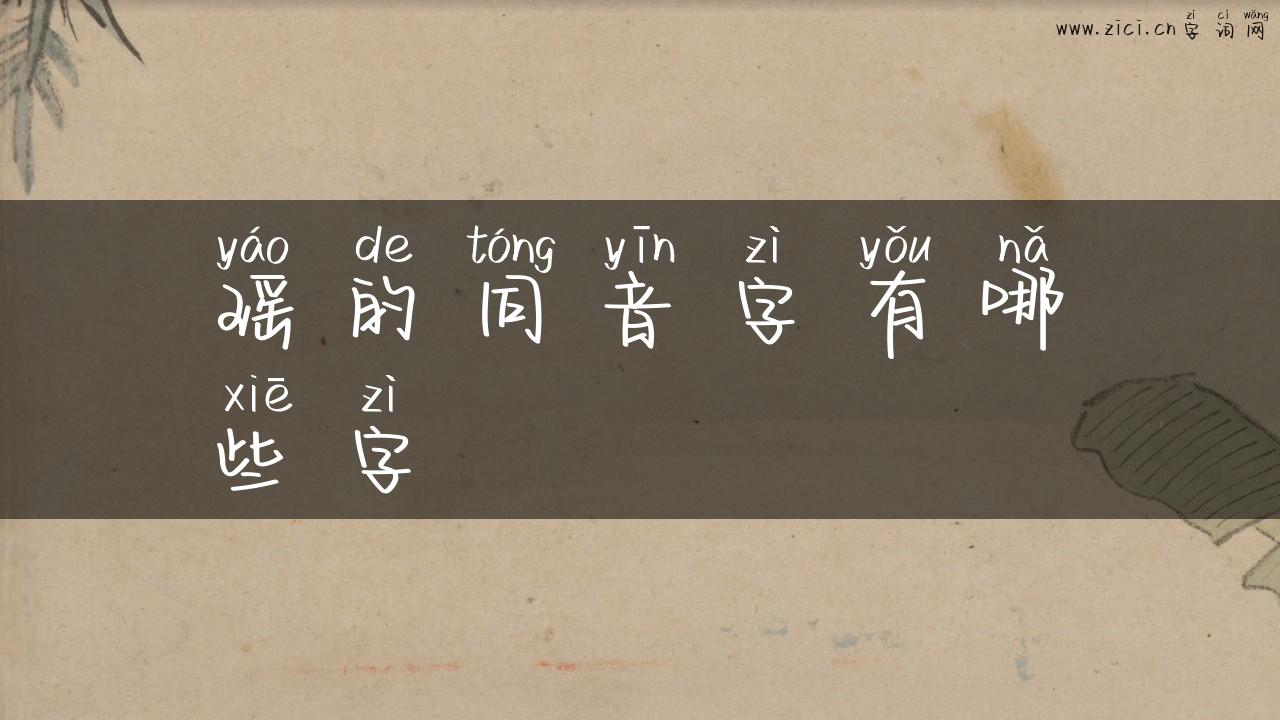 zì cí wǎng
www.zici.cn 字词网
yáo de tóng yīn zì yǒu nǎ
瑶的同音字有哪
xiē zì
些字